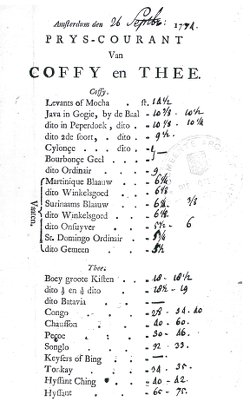 Amsterdam den 26 Septbr 1774.
PRYS-COURANT
Van
COFFY en THEE.
Coffy.
Levants of Mocha . st. 14½
Java in Gogie, by de Baal . 10⅜ . 10½
dito in Peperdoek, dito . 10⅛ . 10¼
dito 2de foort, . dito . 9½
Cylonçe . . dito .
Bourbonçe Geel . .
dito Ordinair . . 9
Martinique Blaauw . . 6¾
dito Winkelsgoed . .
Surinaams Blaauw . .
dito Winkelsgoed . .
dito Onfuyver . . 5½ . 6
St. Domingo Ordinair .
dito Gemeen . .
Vragten,
Thee.
Boey groote Kiften . . 18 . 18½
dito ½ en ¼ dito . . 18½ . 19
dito Batavia . .
Congo . . . 28 . 34 . 40
Chauffon . . 40 . 60.
Pecoe . . . 30 . 46.
Songlo . . . 32 . 33.
Keyfers of Bing . .
Tonkay . . . 34 . 35.
Hyffant Ching . . 40 . 42.
Hyffant . . . 65 . 75.